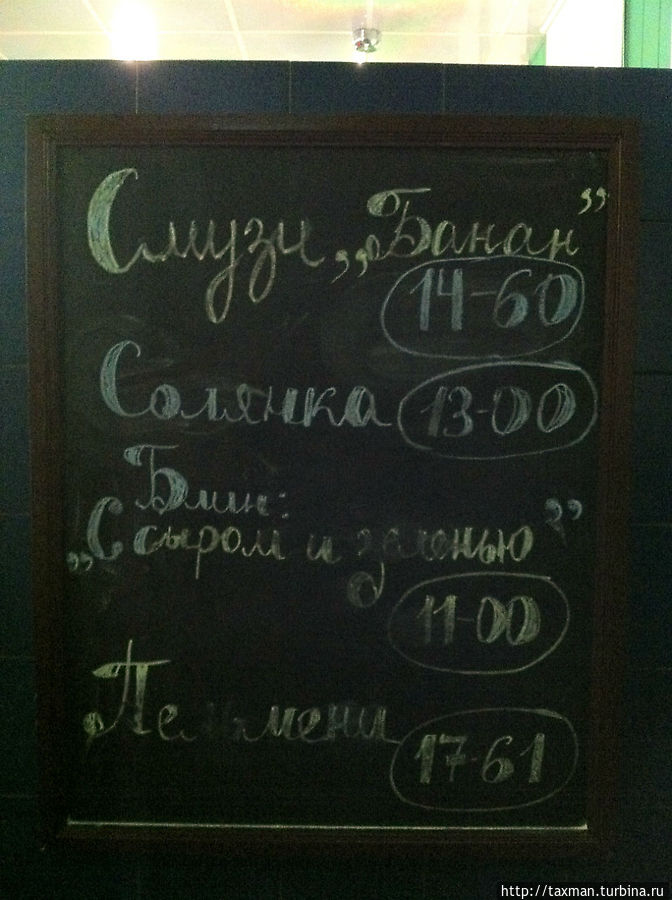 Смузи „Банан”
14-60
Солянка 13-00
Блин:
„С сыром и зеленью”
11-00
Пельмени
17-61
http://taxman.turbina.ru